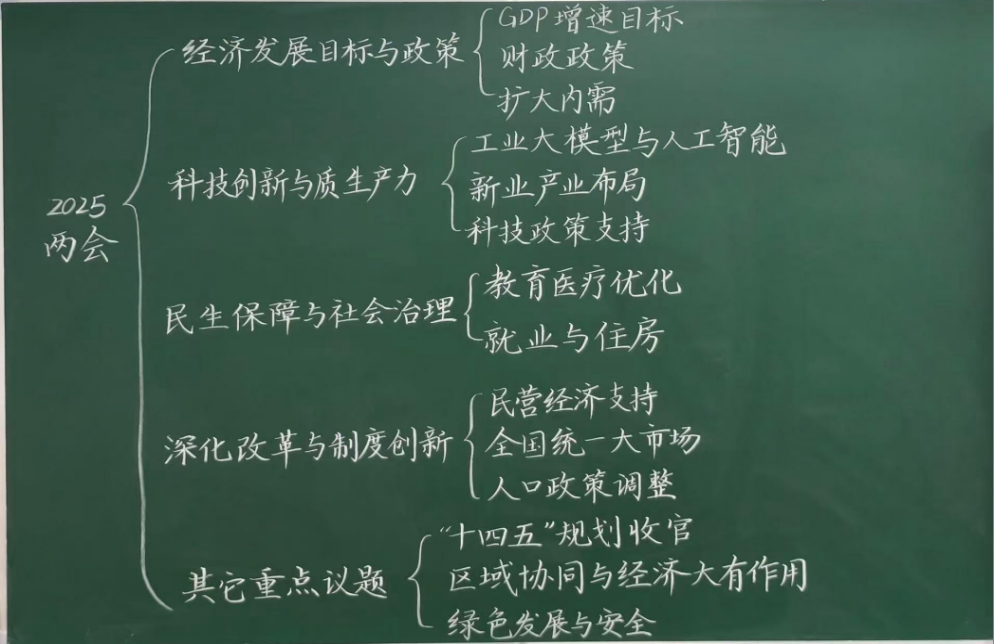 2025
两会
经济发展目标与政策
GDP增速目标
财政政策
扩大内需
科技创新与质生产力
工业大模型与人工智能
新业产业布局
科技政策支持
民生保障与社会治理
教育医疗优化
就业与住房
深化改革与制度创新
民营经济支持
全国统一大市场
人口政策调整
其它重点议题
"十四五"规划收官
区域协同与经济大有作用
绿色发展与安全